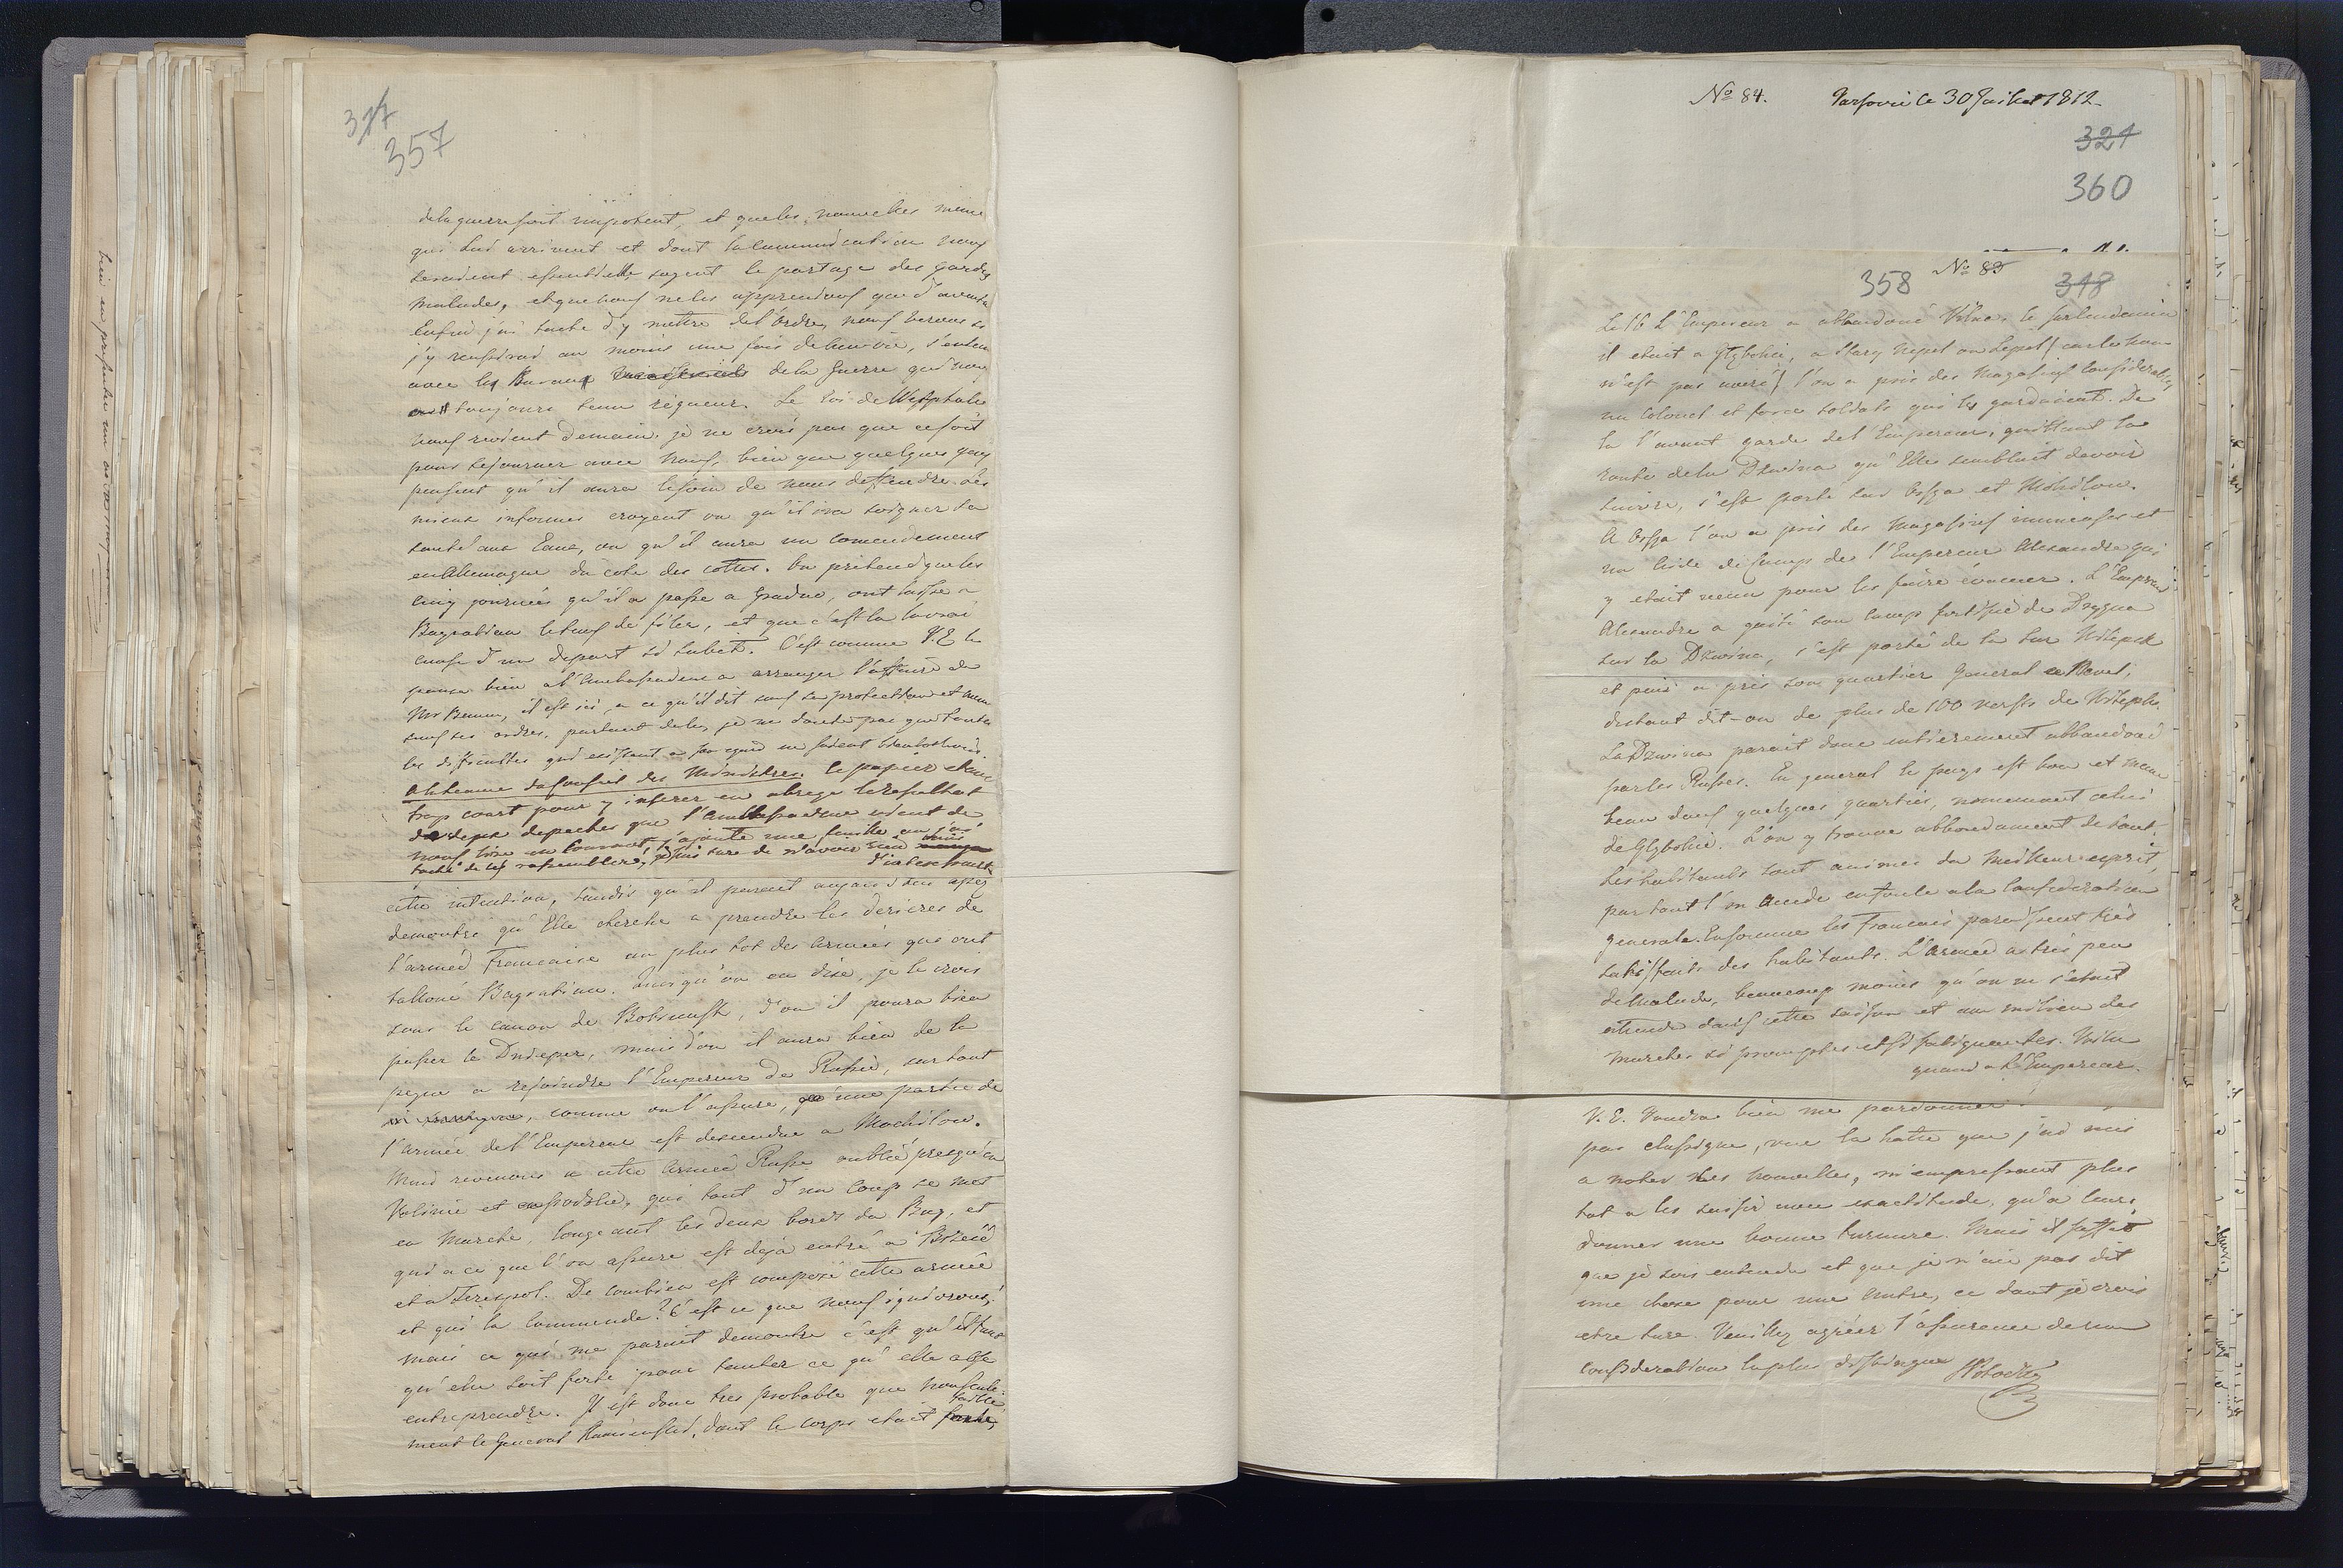 317
357
de la guerre soit impotent, et que les nouvelles même
qui lui arrivent et dont la communication nous
seraient essentielle soyent le partage des gardes
malades, et que nous ne les apprenions que d'
Enfin j'ai taché d'y mettre de l'ordre, nous verrons si
j'y reussirai au moins une fois de ma vie, s'entend
avec les Bureaux de la Guerre qui nous
ont toujours tenu rigueur. Le Roi de Westphalie
nous revient demain. je ne crois pas que ce soit
pour sejourner avec nous, bien que quelques gens
pensent qu'il aura besoin de nous deffendre. Les
mieux informés croyent ou qu'il ira soigner sa
santé aux Eaux, ou qu'il aura un comendement
en Allemagne du coté des cottes. On pretend que les
cinq journées qu'il a passé a Grodno, ont laissé a
Bagration le tems de filer, et que c'est la la vraie
cause d'un depart si subit. C'est comme V. E. le
pense bien a l'Ambassadeur a arranger l'affaire de
Mr , il est ici, a ce qu'il dit sous sa protection et meme
sous ses ordres, partant de la, je ne doute pas que toutes
les difficultés qui existent a son egard ne soient bientot
Ahtenne du Conseil des Ministres. le papier etant
trop court pour y inserer en abregé le resultat
de deux depeches que l'Ambassadeur vient de
nous lire en courant, j'ajoute une feuille ou j'ai
taché de les rassembler, suis sure de n'avoir rien
cette intention, tandis qu'il parait aujourd'hui assez
demontré qu'Elle cherche a prendre les derieres de
l'armée Francaise ou plus tot des armées qui ont
talloné Bagration. Quoiqu'on en dise, je le crois
sous le canon de Bobruisk, d'ou il poura bien
passer le Dnieper, mais d'ou il aura bien de la
peine a rejoindre l'Empereur de Russie, surtout
si , comme on l'assure, une partie de
l'armée de l'Empereur est descendue a Mochilow.
Mais revenons a cette armée Russe oubliée presqu'en
Volinie et en Podolie, qui tout d'un coup se met
en marche, longeant les deux bords du Bug, et
qui a ce que l'on assure est deja entré a Brzesć
et a Terespol. De combien est composé cette armée
et qui la commende? C'est ce que nous ignorons;
mais ce qui me parait demontré c'est qu'il faut
qu'elle soit forte pour tenter ce qu'elle ose
entreprendre. Il est donc tres probable que non seule-
ment le General Kamienskoi, dont le corps etait faible,
No 84. Varsovie le 30 Juillet 1812.
321
360
No 83
358
318
Le 16 L'Empereur a abbandoné Vilna. le surlendemain
il etait a Glybokie, a Stary Lepel ou Lepel (car le nom
n'est pas averé) l'on a pris des Magasins considerables
un Colonel et force soldats qui les gardaient. De
la l'avant garde de l'Empereur, quittant la
route de la Dzwina qu'Elle semblait devoir
suivre, s'est porté sur Orsza et Mohilow.
A Orsza l'on a pris des Magasins immenses et
un Aide de Camps de l'Empereur Alexandre qui
y etait venu pour les faire évacuer. L'Empereur
Alexandre a quité son camp fortifié de Dryssa
sur la Dzwina, s'est porté de la sur Witepsk
et puis a pris son quartier General a Newel,
distant dit-on de plus de 100 versts de Witepsk.
La Dzwina parait donc entierement abbandonné
par les Russes. En general le pays est bon et meme
beau dans quelques quartiers, nomement celui
de Glybokie. L'on y trouve abbondament de tout.
Les habitants sont animés du meilleur esprit,
partout l'on accede en foule a la Confederation
Generale. En somme les Francais paraissent très
satisfaits des habitants. L'armée a très peu
de Malade, beaucoup moins qu'on ne s'etait
attendu dans cette saison et au milieu des
marches si promptes et si fatiguantes. Voila
quand a l'Empereur.
V. E. Voudra bien me pardonner
pas classique, vue la hatte que j'ai mis
a noter les nouvelles, m'empressant plus
tot a les saisir avec exactitude, qu'a leur
donner une bonne turnure. Mais il suffit
que je sois entendu et que je n'aie pas dit
une chose pour une autre, ce dont je crois
etre sure. Veuillez agréer l'assurance de ma
consideration la plus distingué SPotocki